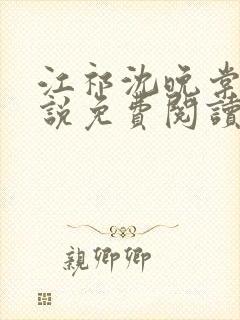 江祁沈晚棠
說免費閱讀
親卿卿